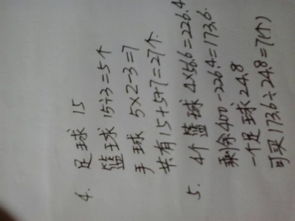 4. 足球 15
篮球 15÷3=5个
手球 5×2-3=7
共有15+5+7=27个.
5. 4个篮球 4×56.6=226.4
剩余400-226.4=173.6.
一个足球24.8
可买173.6÷24.8=7(个)